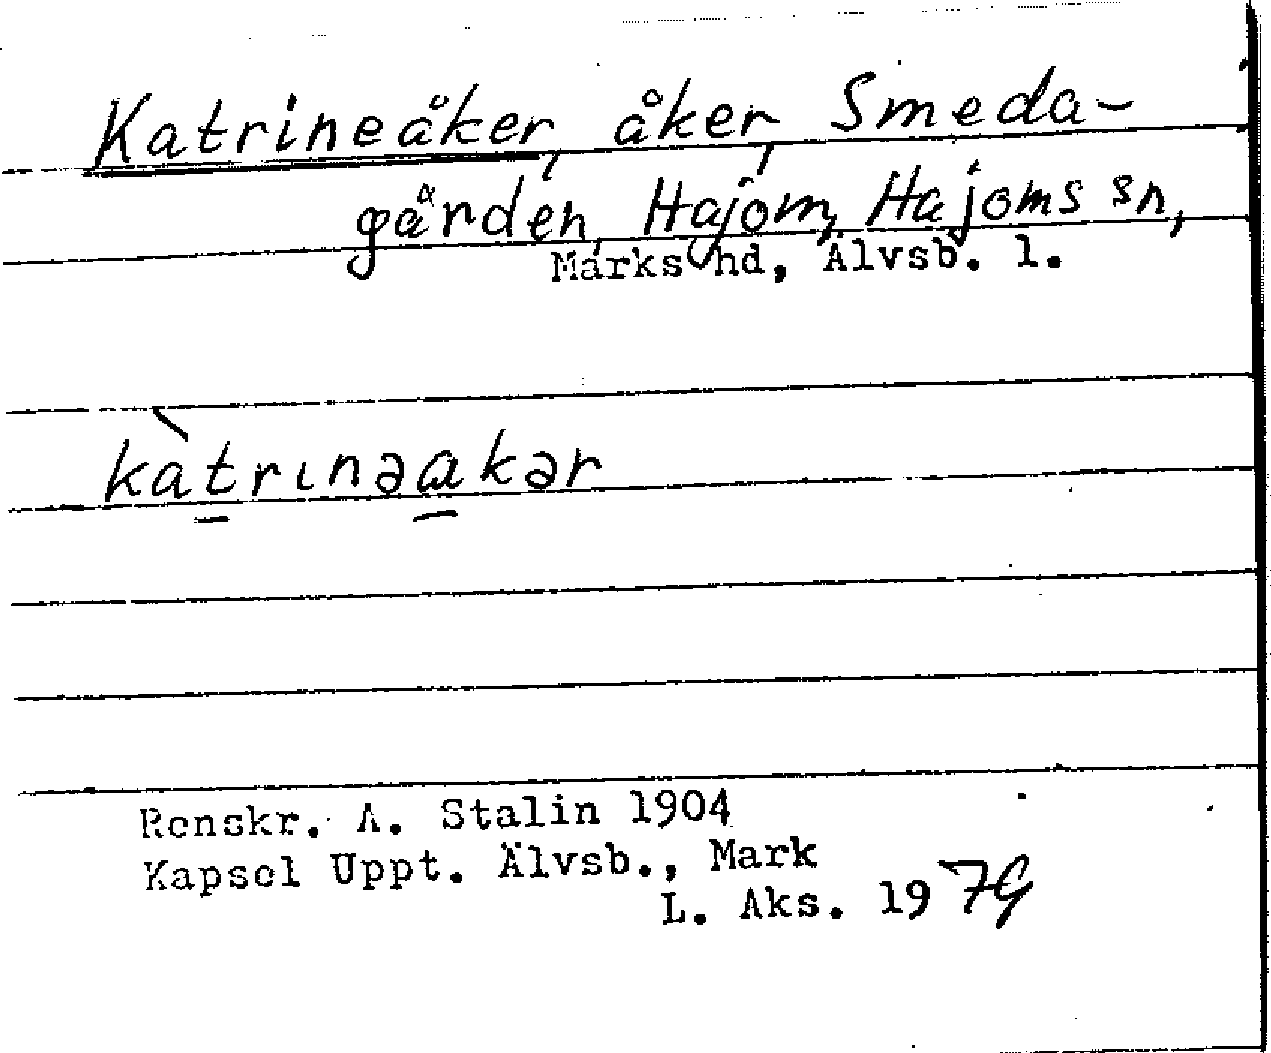 Katrineåker, åker, Smeda-
gården, Hajom, Hajoms sn,
Marks hd, Älvsb. l.
kàtrınəakər
Renskr. A. Stalin 1904
Kapsel Uppt. Älvsb., Mark
L. Aks. 1979